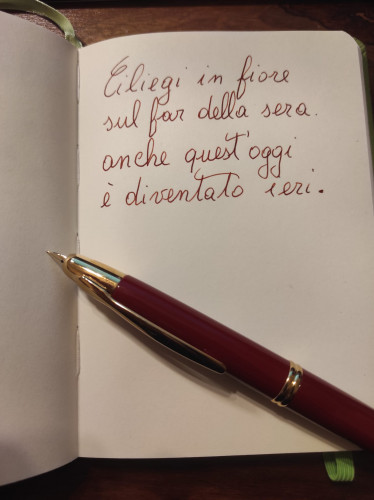 Ciliegi in fiore
sul far della sera.
anche quest'oggi
è diventato ieri.